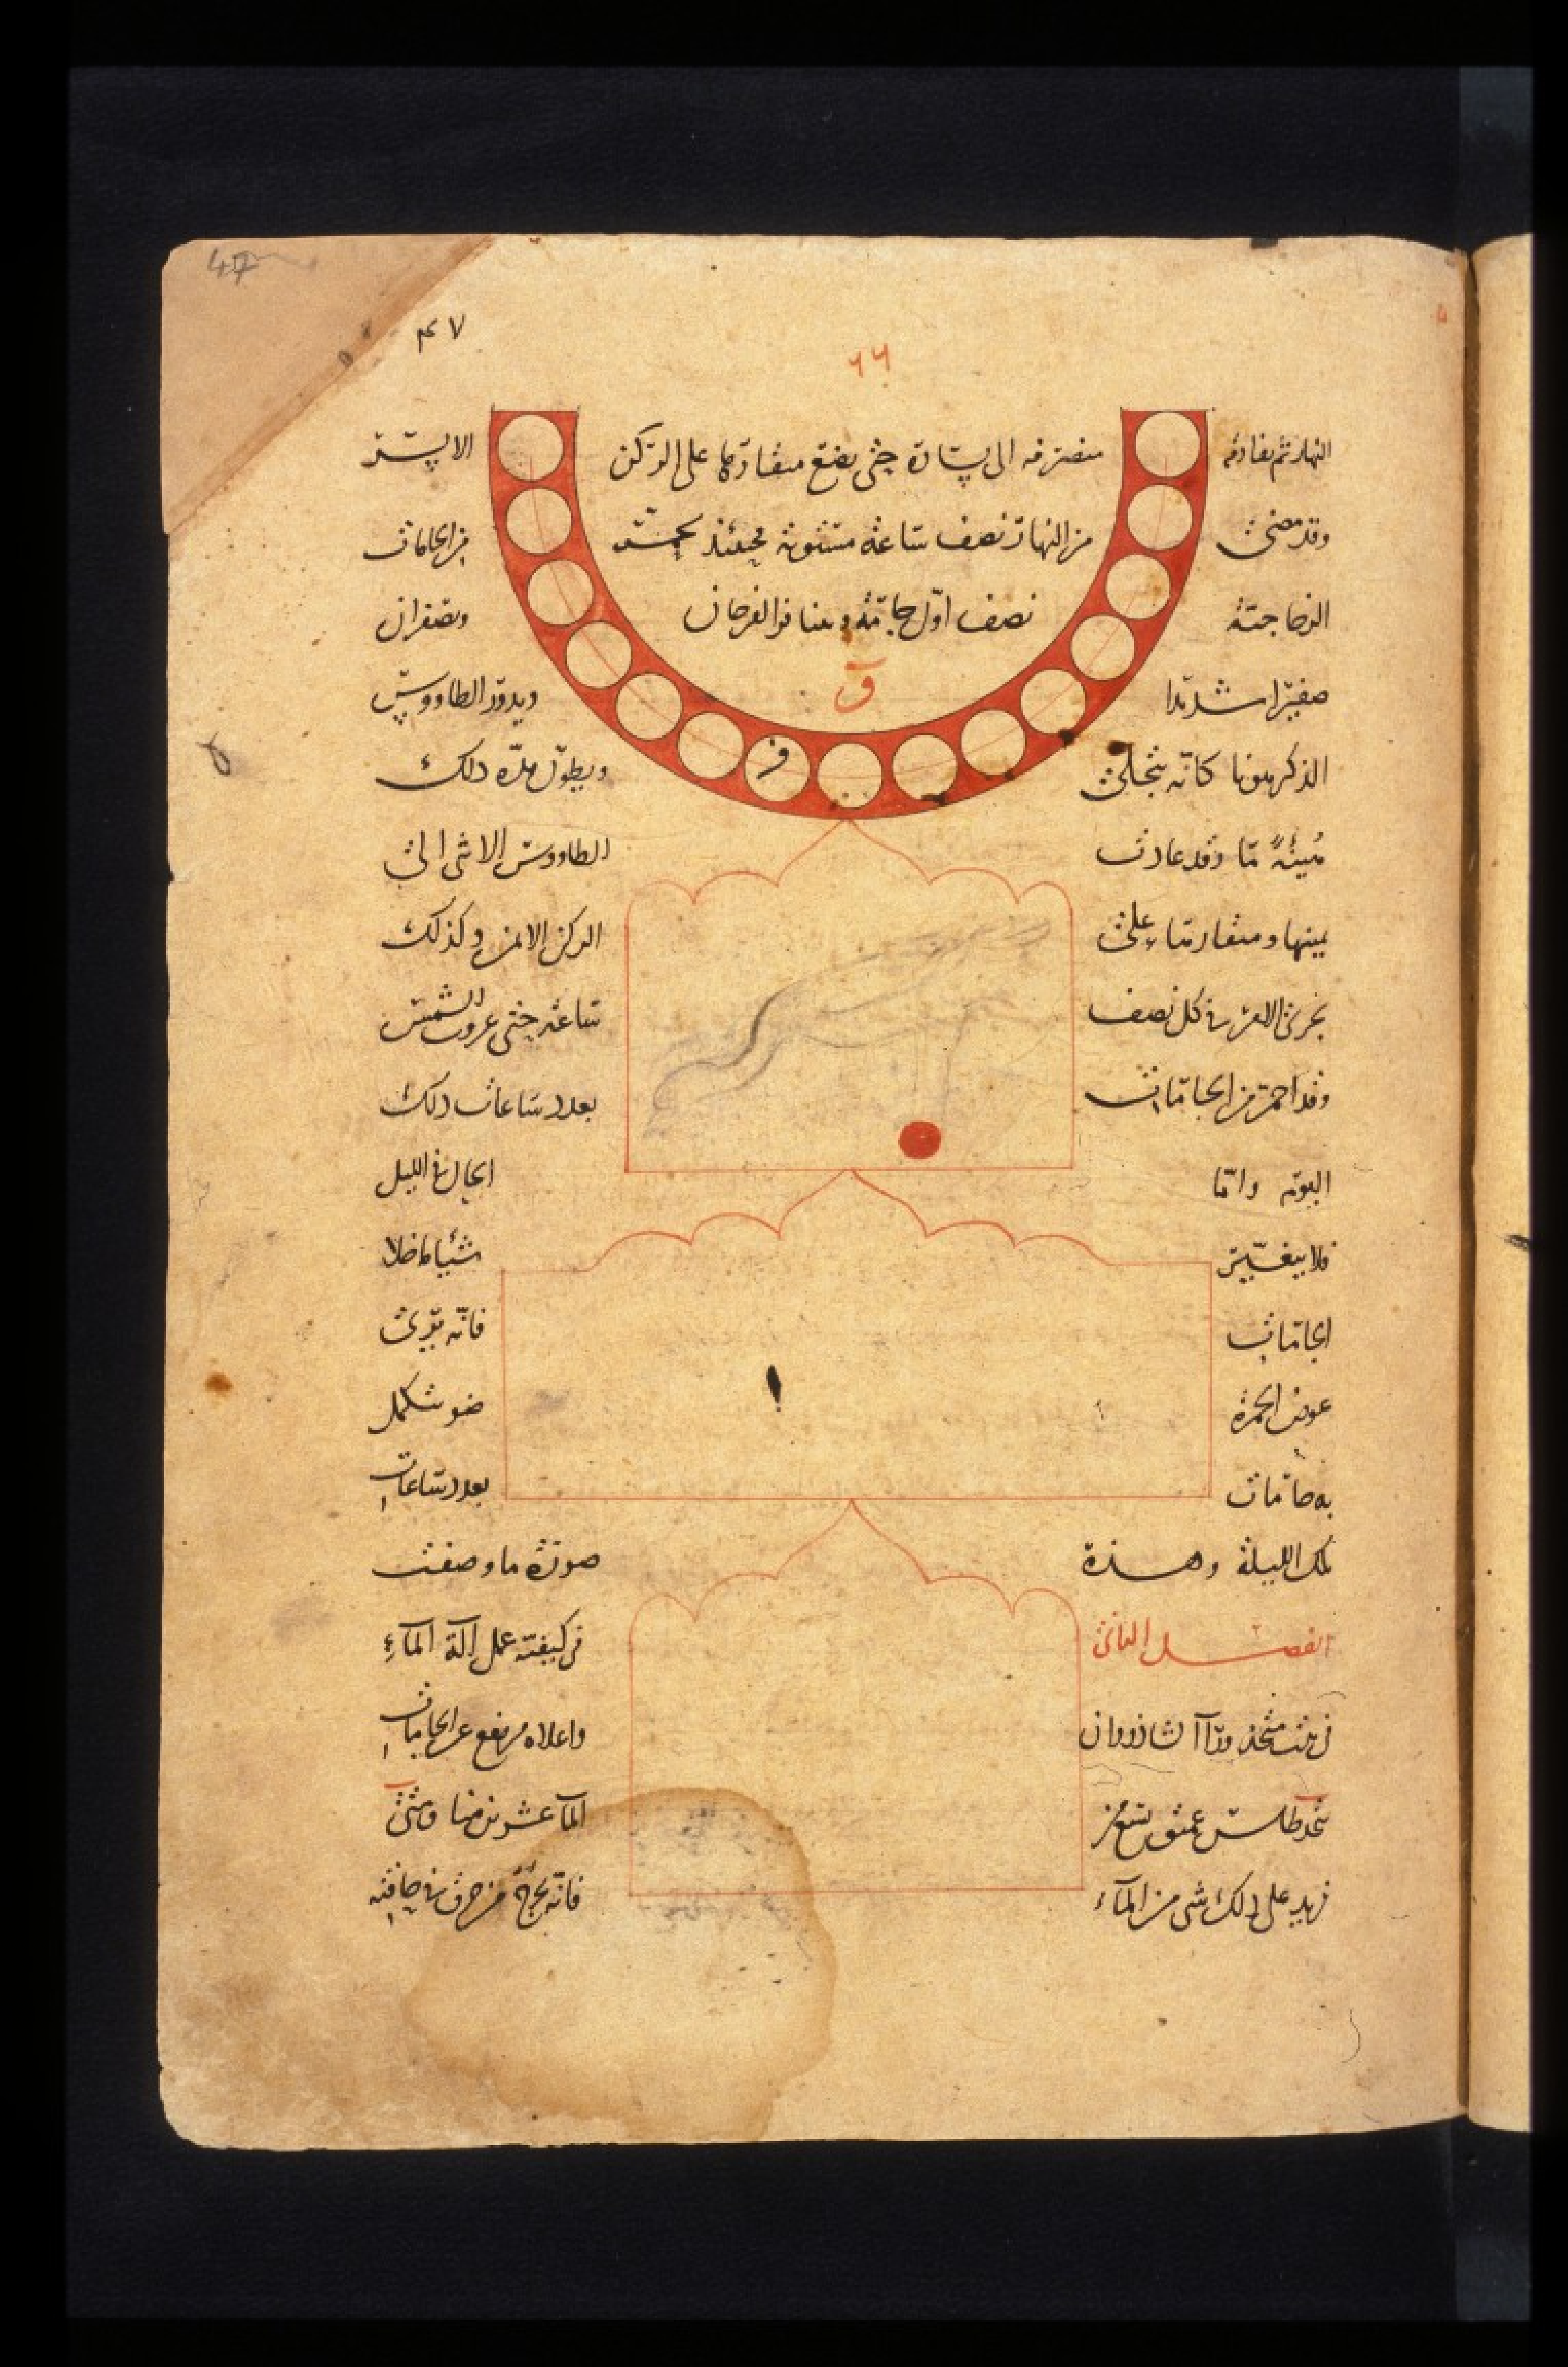 47
٤٧
٦٦
النهار ثم تفارقه منصرفه الى يساره حتى يضع منقارها على الركن الايسر
وقد مضى من النهار نصف ساعة مستوية فحينئذ يحمر من الجامات
الزجاجية نصف اول جامة ويتنافر الفرخان ويصفران
صفيرا شديدا ويدور الطاووس
ق
الذكر هونا كانه ينجلى ويطول مدة ذلك
ف
هنيئة ما وقد عادت الطاووس الانثى الى
يمينها ومنقارها على الركن الايمن وكذلك
يجرى الامر فى كل نصف ساعة حتى غروب الشمس
وقد احمر من الجامات بعدد ساعات ذلك
اليوم واما الحال فى الليل
فلا يتغير شيئا ما خلا
الجامات فانه يرى
عوض الحمرة ضو تكمل
به جامات بعدد ساعات
تلك الليلة وهذه صورة ما وصفت
الفصل الثانى فى كيفية عمل آلة الماء
الشاذروان واعلاه مرتفع عن الجامات
يتخذ طاس عميق يسع من الماء عشرون منا ومتى
زيد على ذلك شى من الماء فانه يخرج من خرق فى حافته